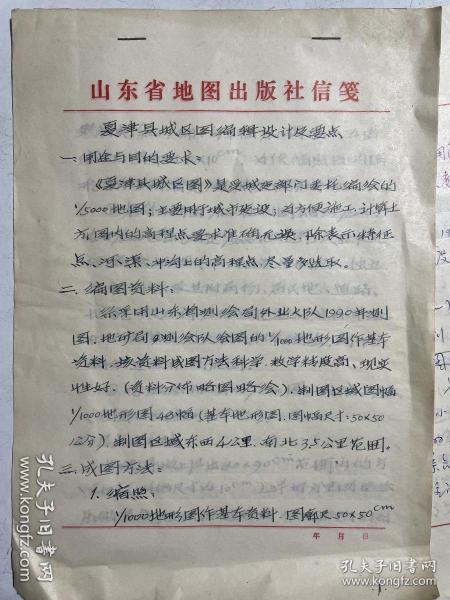 山东省地图出版社信笺
夏津县城区图编辑设计及要点
一.用途与目的要求:
《夏津县城区图》是受城建部门委托编绘的
1/5000地图;主要用于城市建设;为方便施工,计算土
方,图内的高程点要求准确无误,除表示特征
点、河、渠、冲沟上的高程点,尽量多选取。
二.编图资料:
采用山东省测绘局外业大队1990年测
图,地矿局测绘队绘图的1/1000地形图作基本
资料,该资料成图方法科学,数学精度高、现实
性好.(资料分佈略图略绘).制图区域图幅
1/1000地形图48幅(基本地形图,图幅尺寸:50×50
公分),制图区域东西4公里,南北3.5公里范围。
三.成图方法:
1.缩照:
1/1000地形图作基本资料.图廓尺50×50cm
年 月 日
孔夫子旧书网
孔夫子旧书网